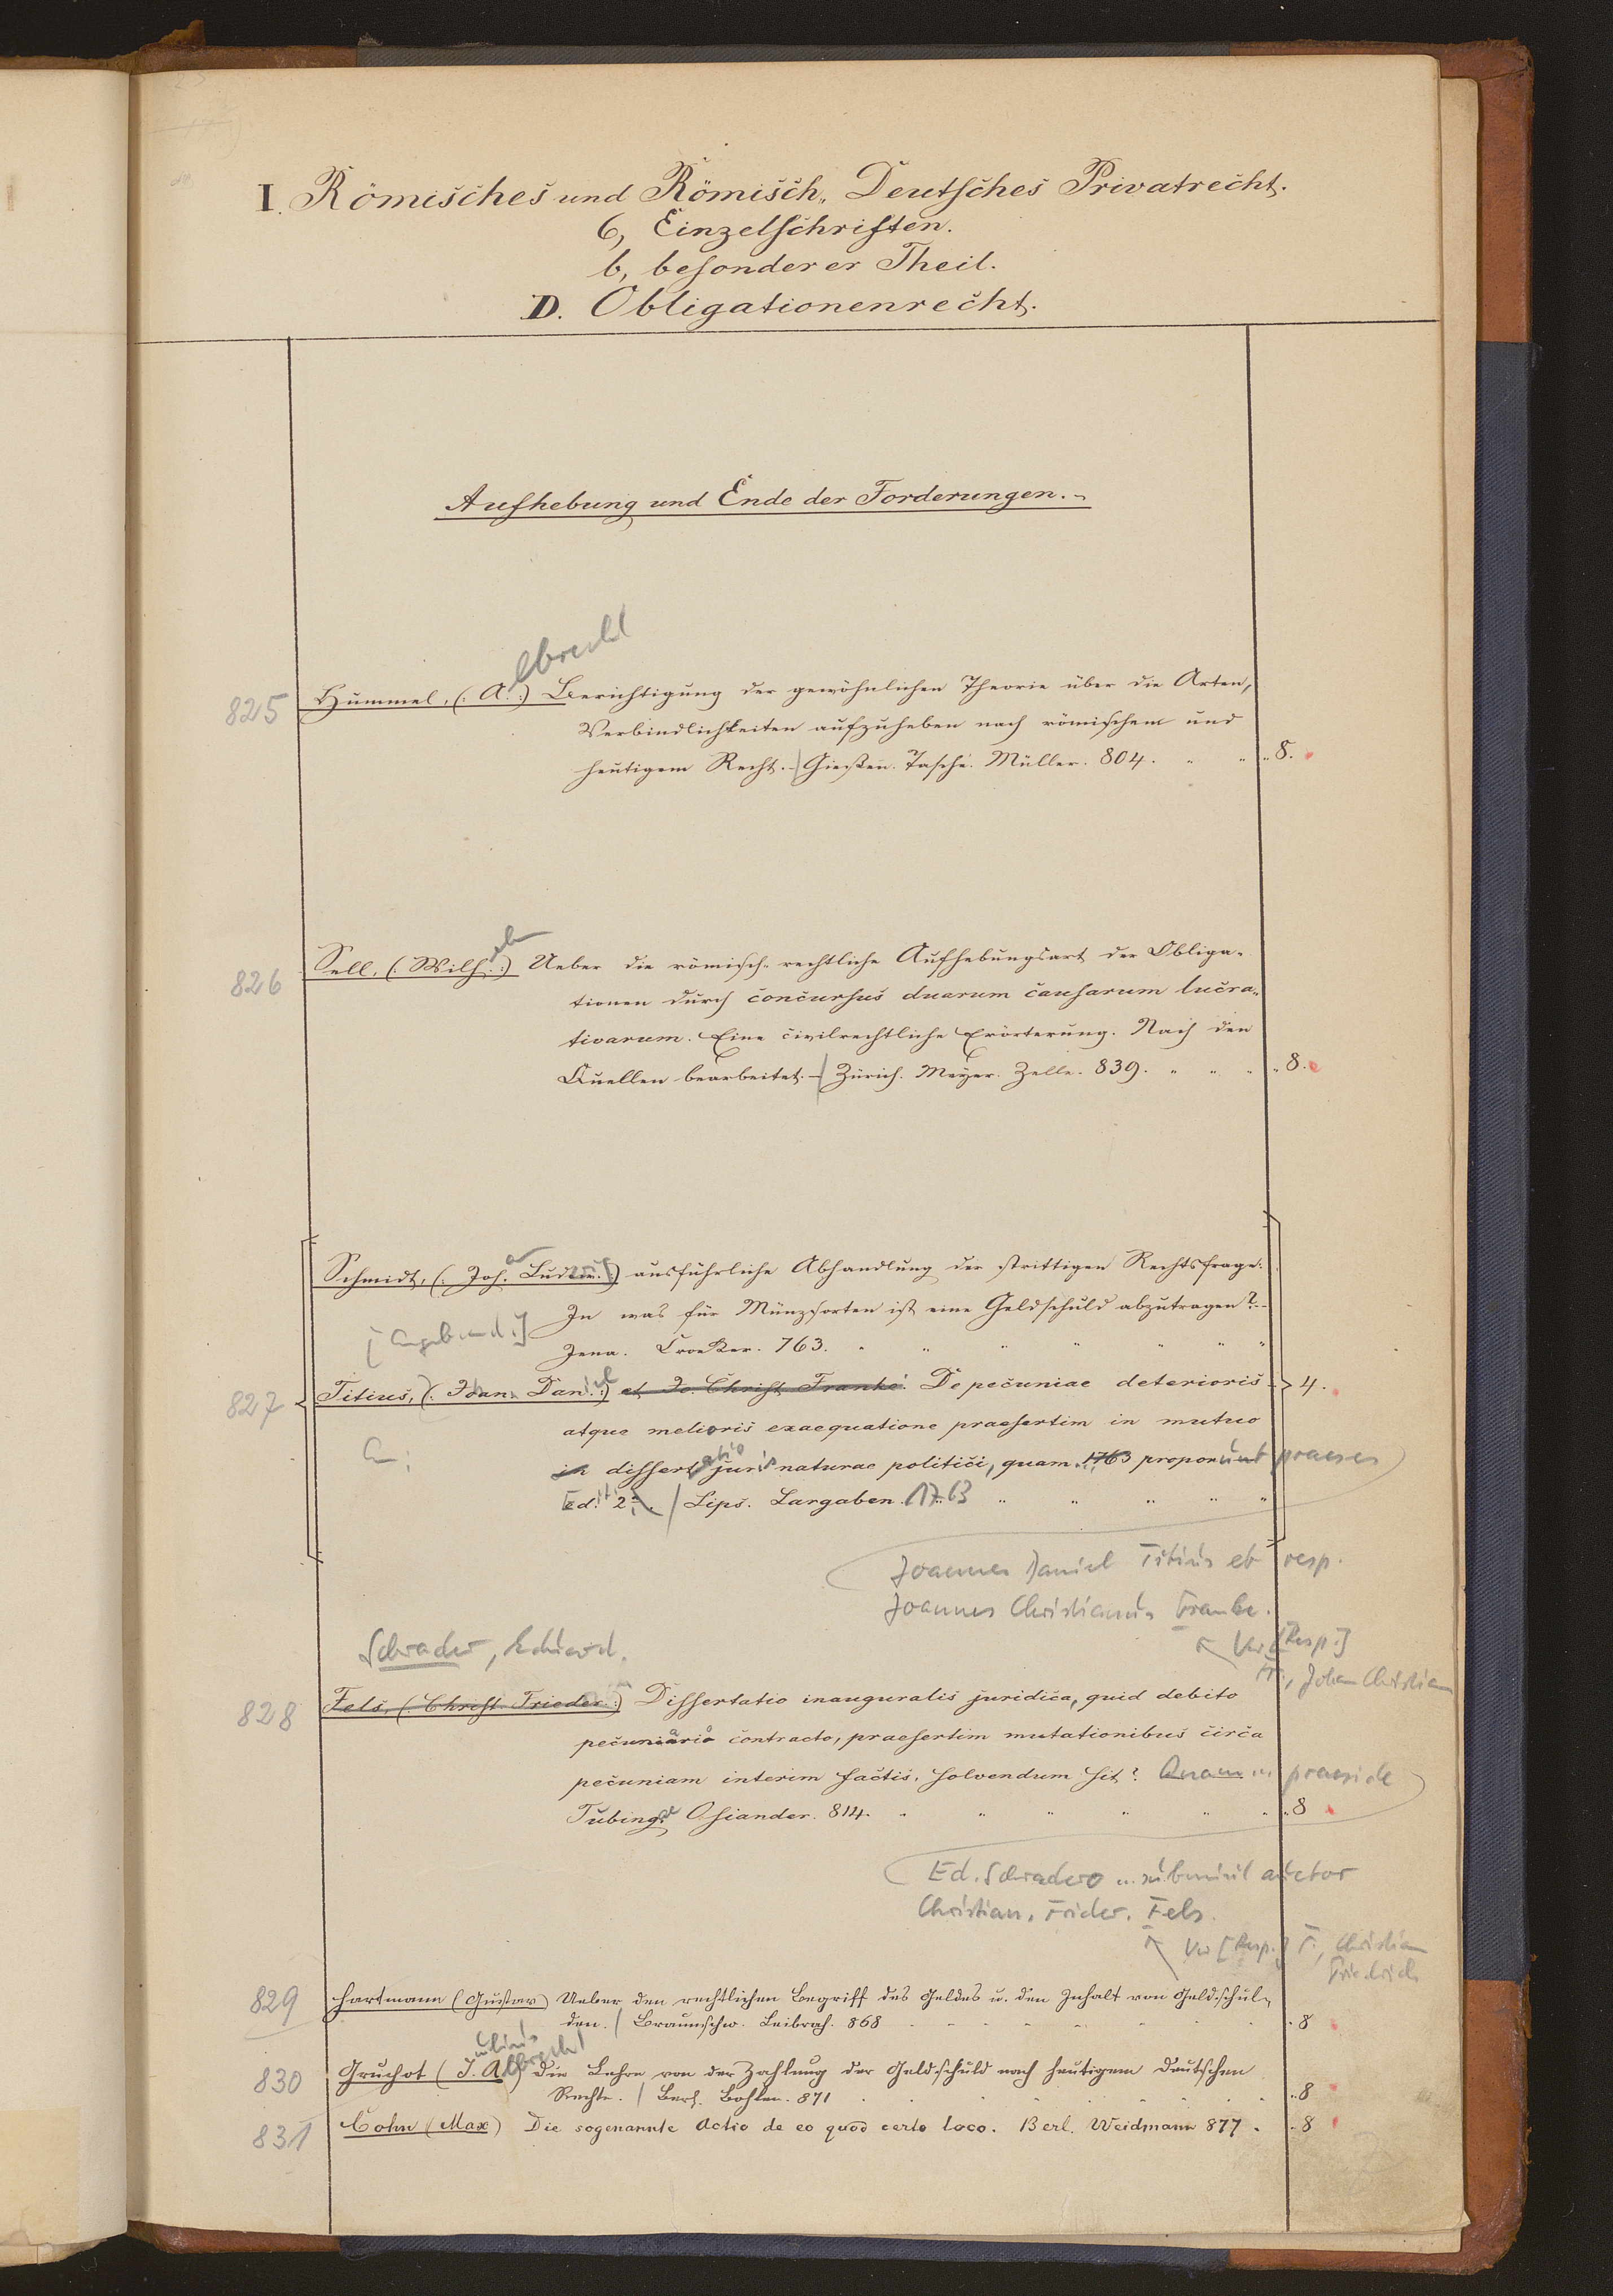 I. Römisches und Römisch-Deutsches Privatrecht.
6, Einzelschriften.
b, besonderer Theil.
D. Obligationenrecht.
Aufhebung und Ende der Forderungen.-
lbrecht
825 Hummel, (: A. :) Berichtigung der gewöhnlichen Theorie über die Arten,
Verbindlichkeiten aufzuheben nach römischem und
heutigem Recht. - Gießen. Tasché. Müller. 804. " " " 8.
elm
826 Sell, (: Wilh. :) Ueber die römisch-rechtliche Aufhebungsart der Obliga-
tionen durch concursus duarum causarum lucra-
tivarum. Eine civilrechtliche Erörterung. Nach den
Quellen bearbeitet. - Zürich. Meyer. Zelle. 839. " " " " 8.
Schmidt, (: Joh. Ludw. :) ausführliche Abhandlung der strittigen Rechtsfrage:
In was für Münzsorten ist eine Geldschuld abzutragen? -
[Angebund.] Jena. Croeker. 763. " " " " " " "
827 Titius, (: Joan. Daniel :) et Jo. Christ. Franke. De pecuniae deterioris 4.
atque melioris exaequatione praesertim in mutuo
An: in dissertatio juris naturae politici, quam 1763 proponunt praeses
Ed. 2a. / Lips. Largaben. 1763 " " " " "
Joannes Daniel Titius et resp.
Joannes Christianus Franke.
Vw [Resp.]
Fr., Johan Christian
Schrader, Eduard.
828 Fels, (: Christ. Frieder. :) Dissertatio inauguralis juridica, quid debito
pecuniario contracto, praesertim mutationibus circa
pecuniam interim factis, solvendum sit? Quam ... praeside
Tubingae Osiander. 814. " " " " " " " 8
Ed. Schradero ... submisit auctor
Christian. Frider. Fels.
Vw [Resp.] F., Christian
Friedrich
829 Hartmann (Gustav) Ueber den rechtlichen Begriff des Geldes u. den Inhalt von Geldschul-
den. / Braunschw. Leibrock. 868 " 8
ulius lbrecht
830 Gruchot (J. A.) Die Lehre von der Zahlung der Geldschuld nach heutigem deutschen
Rechte. / Berl. Bohlen. 871 " 8
831 Cohn (Max) Die sogenannte Actio de eo quod certo loco. Berl. Weidmann 877. " 8